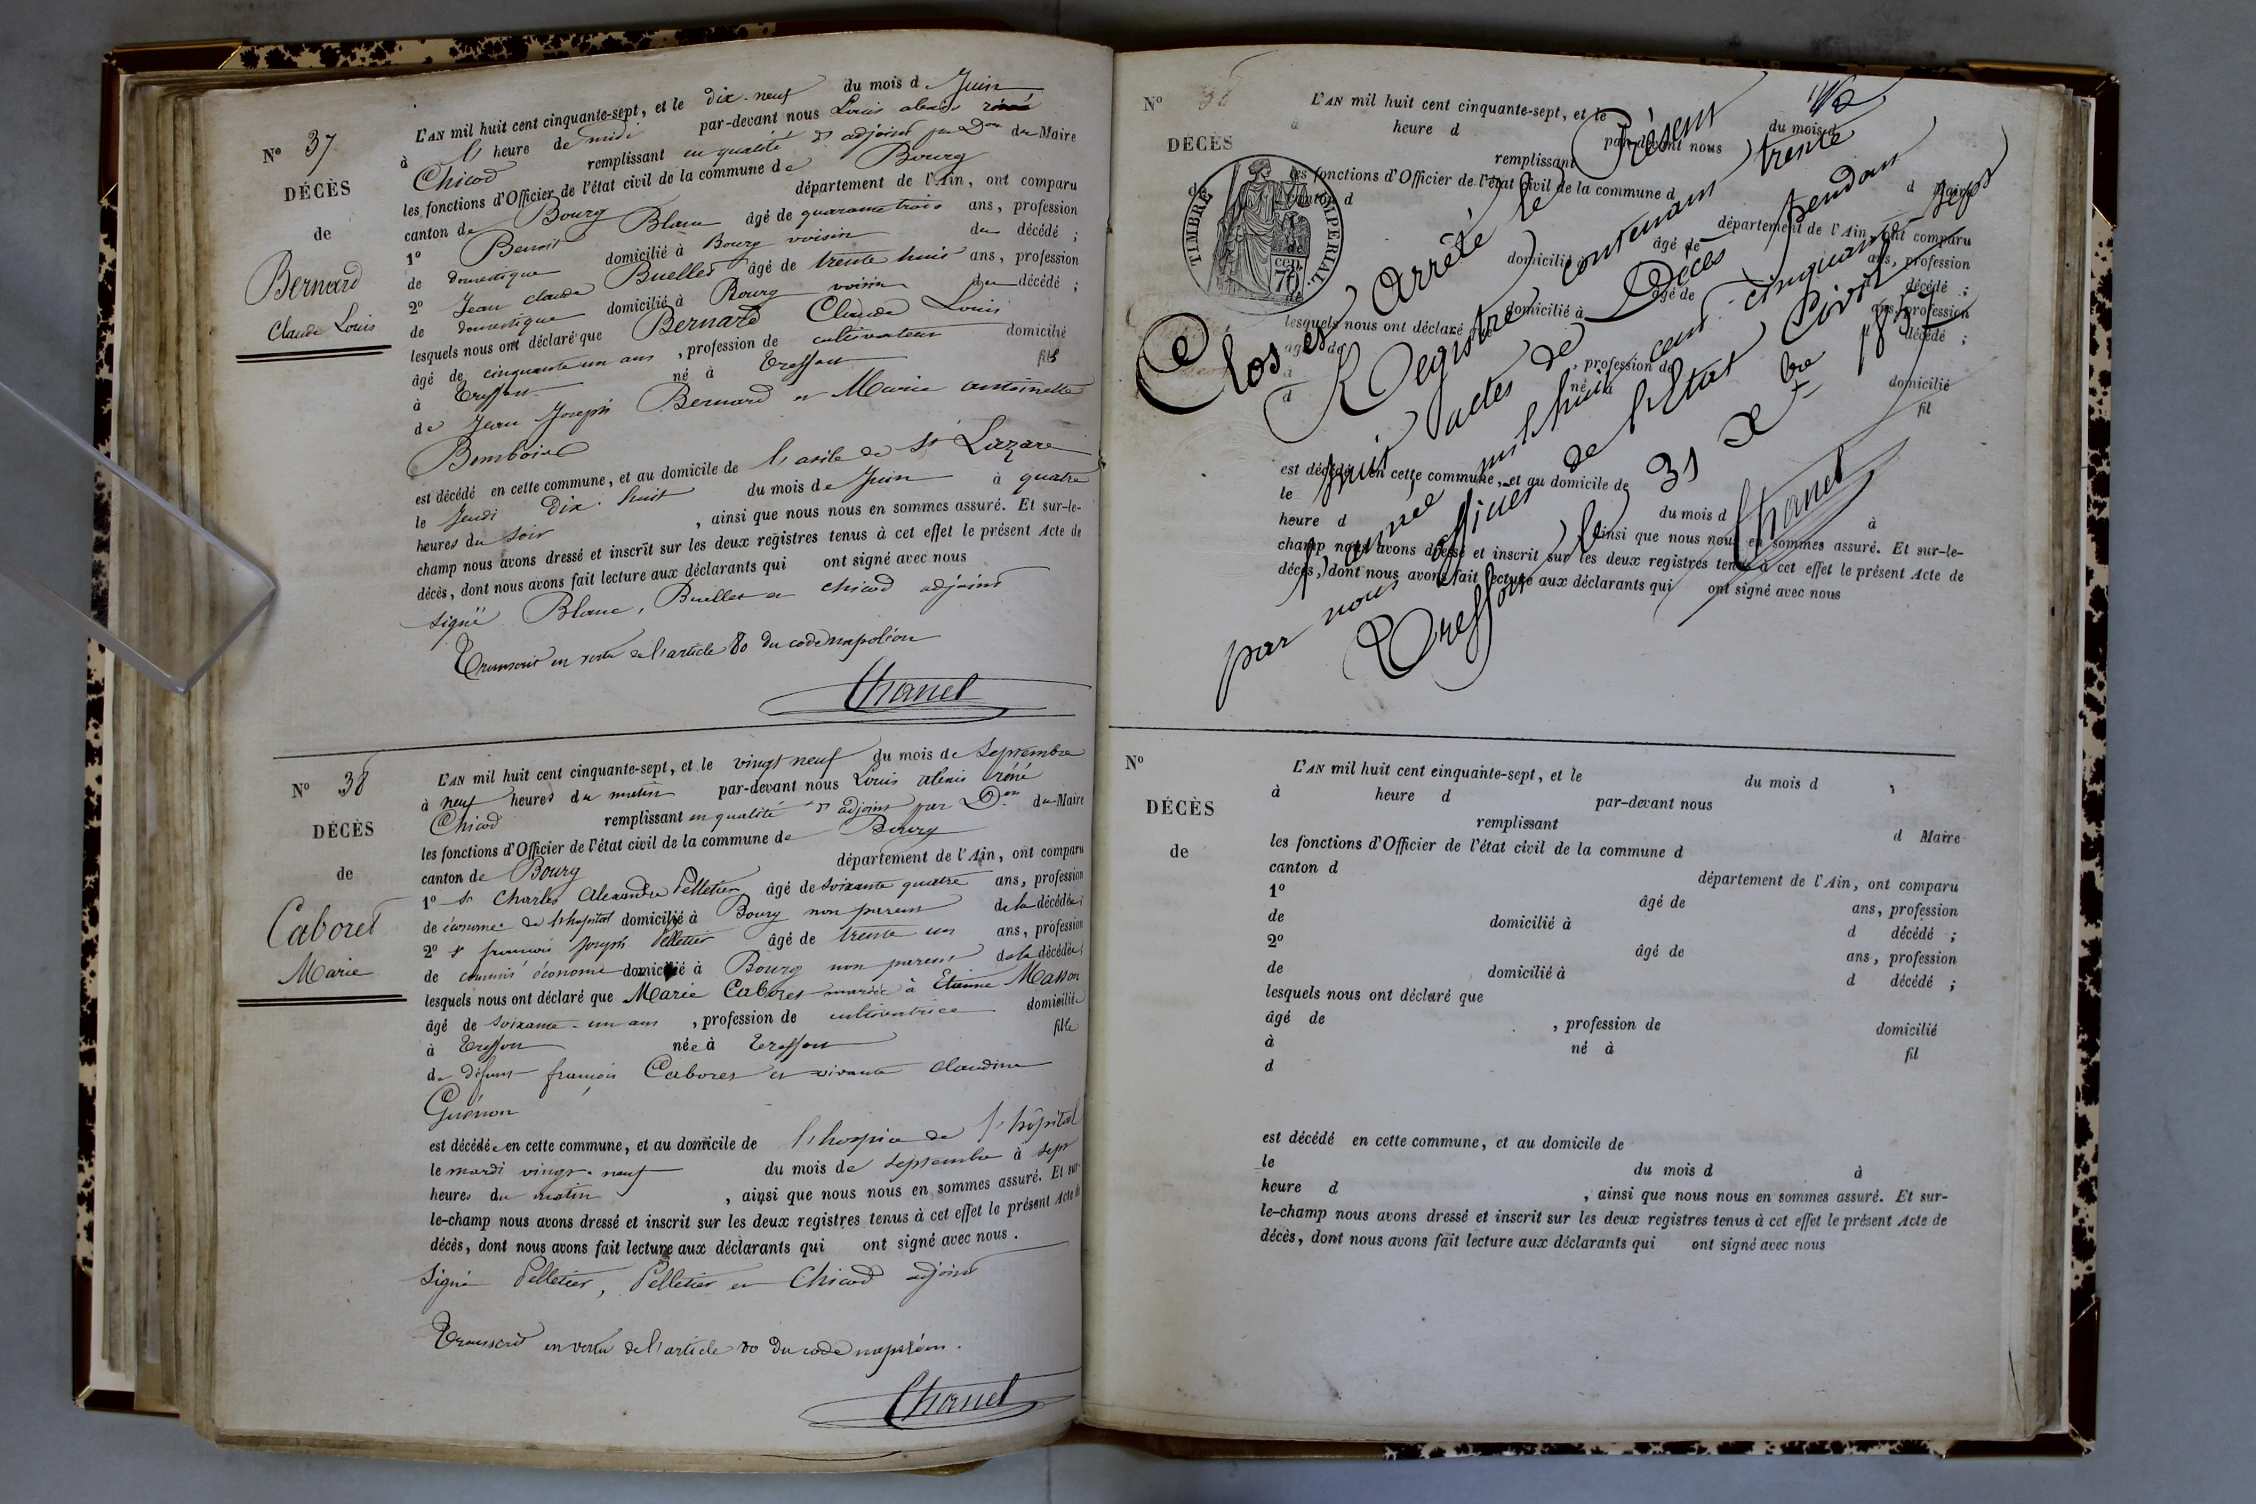 N° 37
DÉCÈS
de
Bernard
Claude Louis
L'AN mil huit cent cinquante-sept, et le dix-neuf du mois de Juin
à l' heure de midi par-devant nous Louis alexis réné
Chicod remplissant en qualité d'adjoint par Don du Maire
les fonctions d'Officier de l'état civil de la commune de Bourg
canton de Bourg département de l'Ain, ont comparu
1° Benoit Blanc âgé de quarante trois ans, profession
de domestique domicilié à Bourg voisin du décédé ;
2° Jean claude Buellet âgé de trente huit ans, profession
de domestique domicilié à Bourg voisin du décédé ;
lesquels nous ont déclaré que Bernard Claude Louis
âgé de cinquante un ans, profession de cultivateur domicilié
à Treffort né à Treffort fils
de Jean Joseph Bernard et Marie antoinette
est décédé en cette commune, et au domicile de l'asile de St Lazare
le Jeudi dix-huit du mois de Juin à quatre
heures du soir, ainsi que nous nous en sommes assuré. Et sur-le-
champ nous avons dressé et inscrit sur les deux registres tenus à cet effet le présent Acte de
décès, dont nous avons fait lecture aux déclarants qui ont signé avec nous
signé Blanc, Buellet et Chicod adjoint
Transcrit en vertu de l'article 80 du code napoléon
Chanel
N° 38
DÉCÈS
de
Caboret
Marie
L'AN mil huit cent cinquante-sept, et le vingt neuf du mois de Septembre
à neuf heures du matin par-devant nous Louis alexis réné
Chicod remplissant en qualité d'adjoint par Don du Maire
les fonctions d'Officier de l'état civil de la commune de Bourg
canton de Bourg département de l'Ain, ont comparu
1° Sr Charles Alexandre Pelletier âgé de soixante quatre ans, profession
de économe de l'hopital domicilié à Bourg non parent de la décédée ;
2° Sr francois Joseph Pelletier âgé de trente un ans, profession
de commis économe domicilié à Bourg non parent de la décédée ;
lesquels nous ont déclaré que Marie Caboret mariée à Etienne Masson
âgé de soixante-un ans, profession de cultivatrice domiciliée
à Treffort née à Treffort fille
de défunt francois Caboret et vivante Claudine
Guénon
est décédée en cette commune, et au domicile de l'hospice de l'hôpital
le mardi vingt-neuf du mois de septembre à sept
heures du matin, ainsi que nous nous en sommes assuré. Et sur-
le-champ nous avons dressé et inscrit sur les deux registres tenus à cet effet le présent Acte de
décès, dont nous avons fait lecture aux déclarants qui ont signé avec nous.
Signé Pelletier, Pelletier et Chicod adjoint
Transcrit en vertu de l'article 80 du code napoléon.
Chanel
N° 38
DÉCÈS
de
TIMBRE IMPERIAL
70 cen.
L'AN mil huit cent cinquante-sept, et le du mois d
à heure d par-devant nous
remplissant d Maire
les fonctions d'Officier de l'état civil de la commune d
canton d département de l'Ain, ont comparu
âgé de ans, profession
domicilié décédé ;
âgé de ans, profession
domicilié à décédé ;
lesquels nous ont déclaré que
âgé de , profession de domicilié
à né à fil
d
est décédé en cette commune, et au domicile de
le du mois d à
heure d , ainsi que nous nous en sommes assuré. Et sur-le-
champ nous avons dressé et inscrit sur les deux registres tenus à cet effet le présent Acte de
décès, dont nous avons fait lecture aux déclarants qui ont signé avec nous
Clos et Arrêté le Présent
Registre contenant trente
huit actes de Décès pendant
l'année mil huit cent cinquante sept
par nous officier de l'Etat Civil
Treffort le 31 Xbre 1857
Chanel
N°
DÉCÈS
de
L'AN mil huit cent cinquante-sept, et le du mois d
à heure d par-devant nous
remplissant d Maire
les fonctions d'Officier de l'état civil de la commune d
canton d département de l'Ain, ont comparu
1° âgé de ans, profession
de domicilié à d décédé ;
2° âgé de ans, profession
de domicilié à d décédé ;
lesquels nous ont déclaré que
âgé de , profession de domicilié
à né à fil
d
est décédé en cette commune, et au domicile de
le du mois d à
heure d , ainsi que nous nous en sommes assuré. Et sur-
le-champ nous avons dressé et inscrit sur les deux registres tenus à cet effet le présent Acte de
décès, dont nous avons fait lecture aux déclarants qui ont signé avec nous